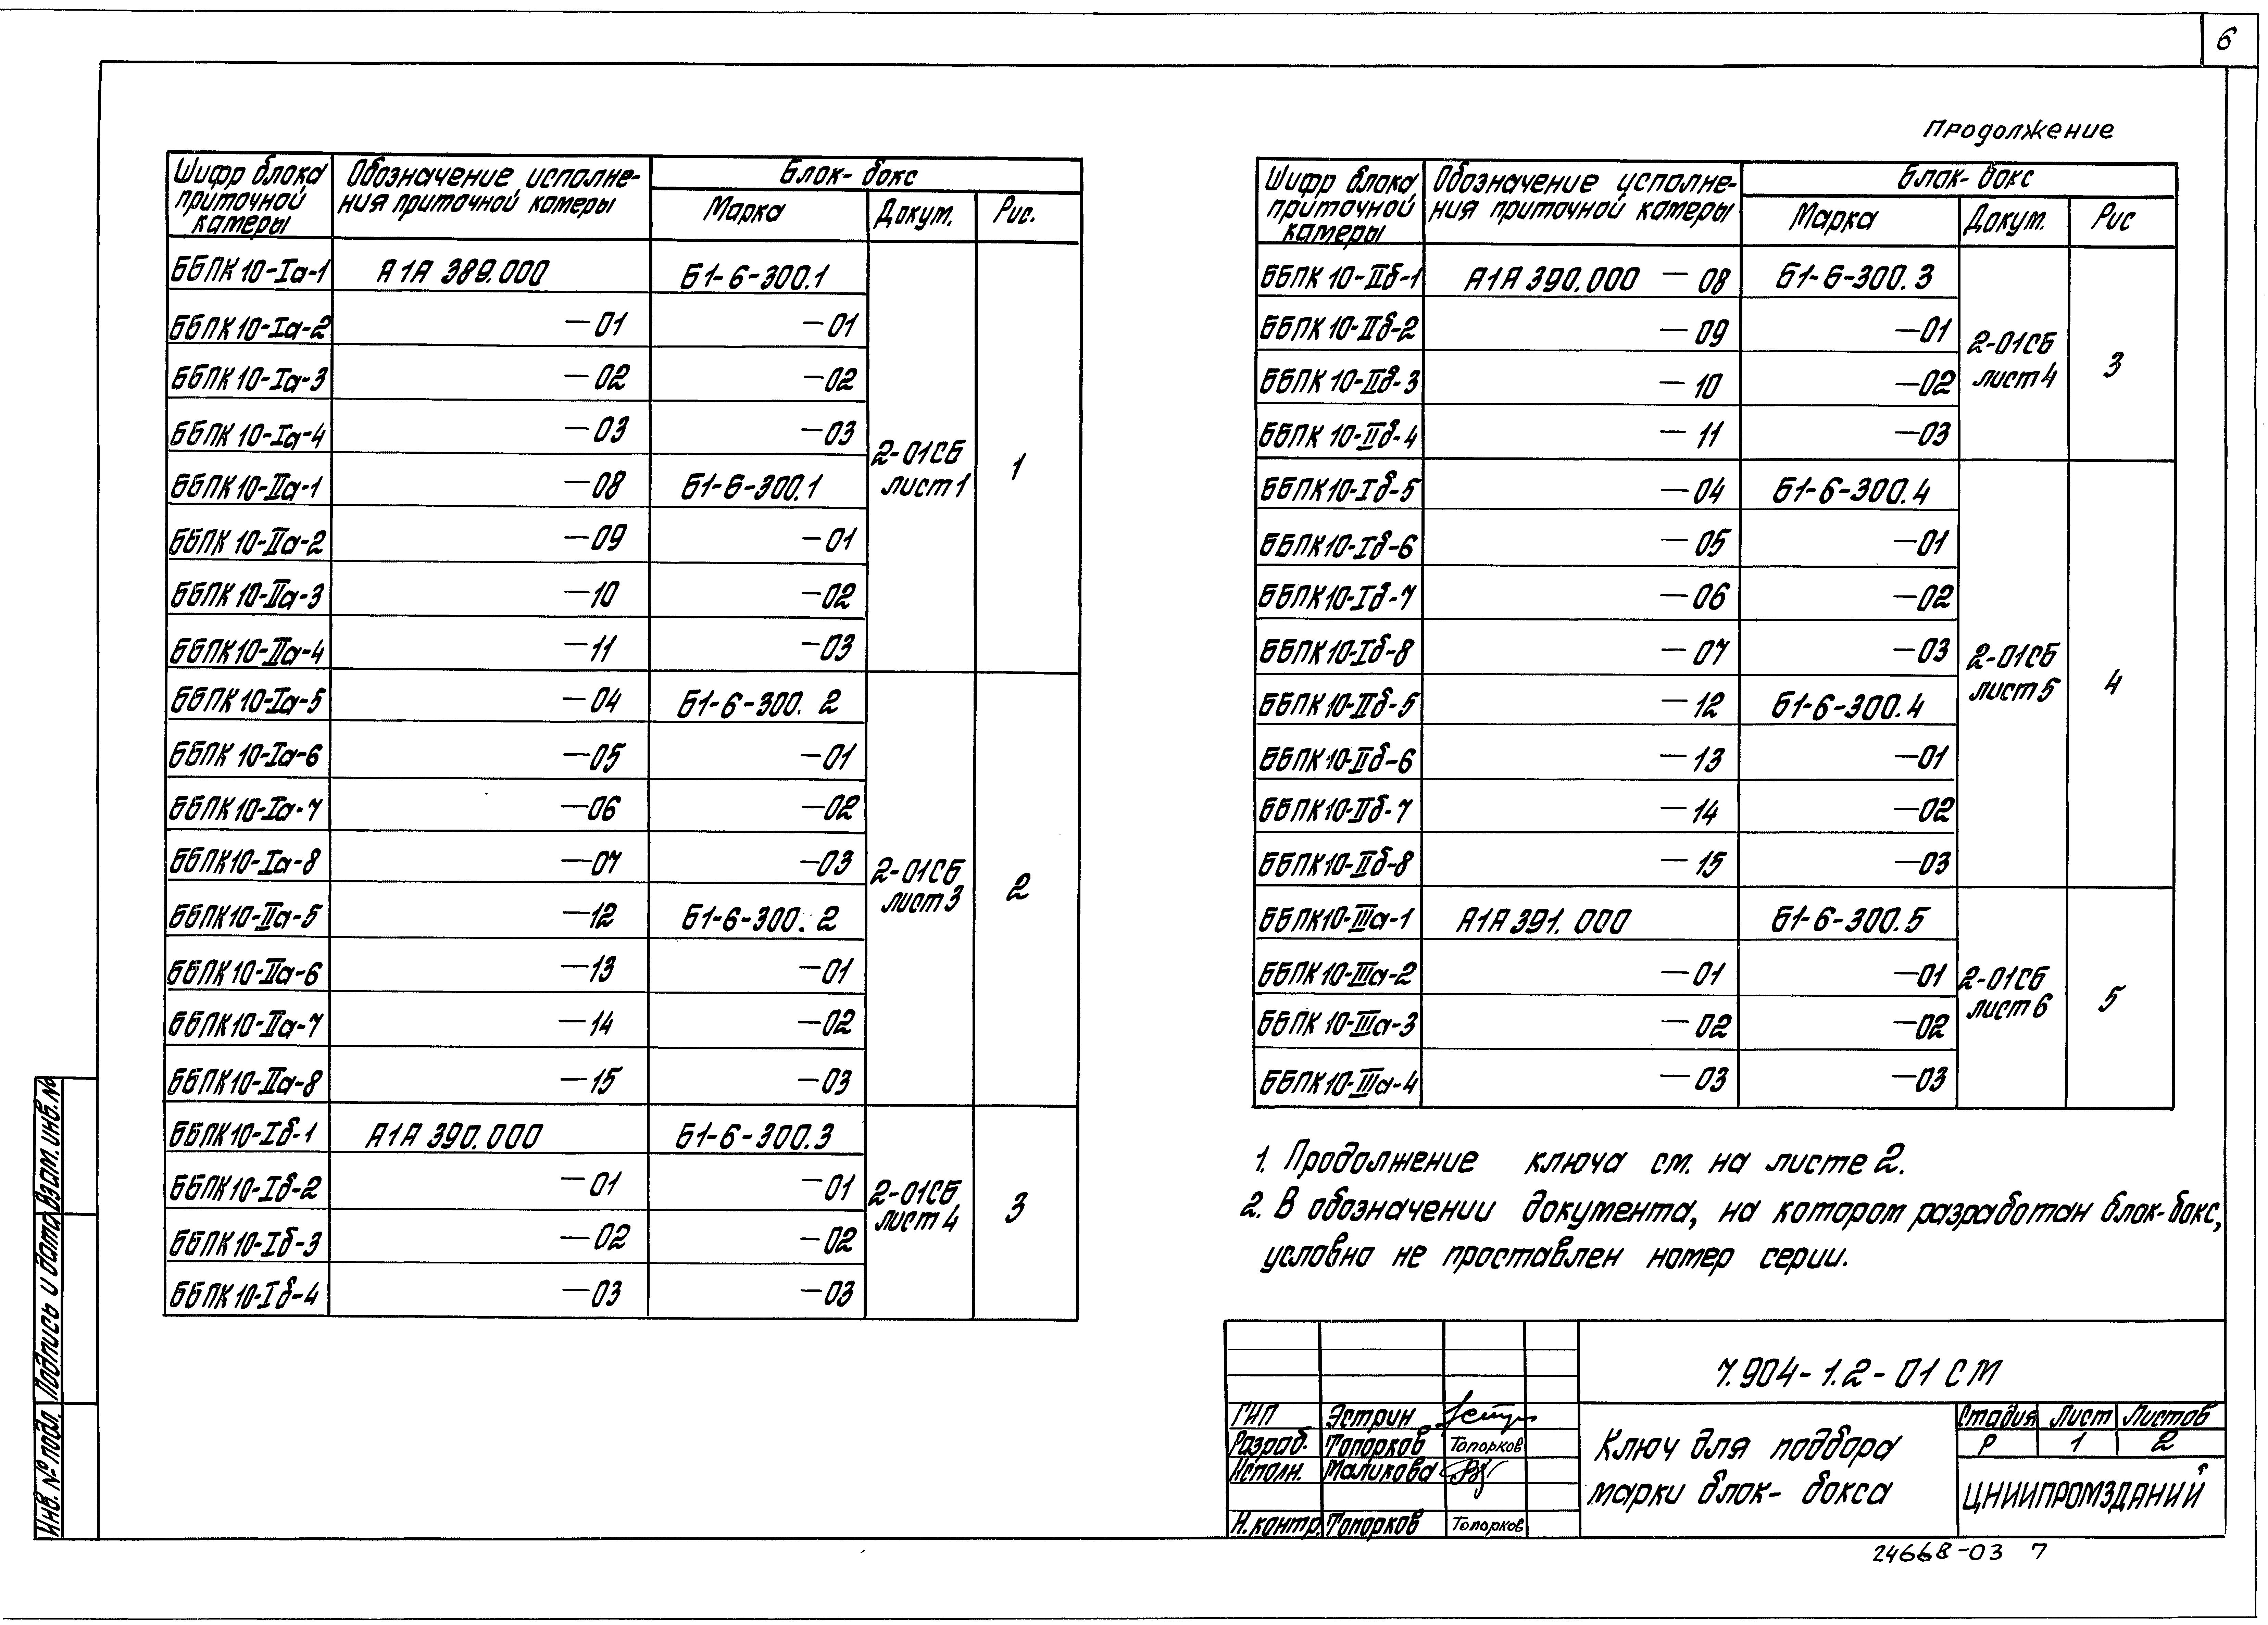 6
Продолжение
Шифр блока приточной камеры | Обозначение исполне-ния приточной камеры | Блок-бокс
Марка | Докум. | Рис.
ББПК 10-Iа-1 | А1А 389.000 | Б1-6-300.1
ББПК 10-Iа-2 | —01 | —01
ББПК 10-Iа-3 | —02 | —02
ББПК 10-Iа-4 | —03 | —03
2-01СБ лист 1 | 1
ББПК 10-IIа-1 | —08 | Б1-6-300.1
ББПК 10-IIа-2 | —09 | —01
ББПК 10-IIа-3 | —10 | —02
ББПК 10-IIа-4 | —11 | —03
ББПК 10-Iа-5 | —04 | Б1-6-300.2
ББПК 10-Iа-6 | —05 | —01
ББПК 10-Iа-7 | —06 | —02
ББПК 10-Iа-8 | —07 | —03
2-01СБ лист 3 | 2
ББПК 10-IIа-5 | —12 | Б1-6-300.2
ББПК 10-IIа-6 | —13 | —01
ББПК 10-IIа-7 | —14 | —02
ББПК 10-IIа-8 | —15 | —03
ББПК 10-Iб-1 | А1А 390.000 | Б1-6-300.3
ББПК 10-Iб-2 | —01 | —01
2-01СБ лист 4 | 3
ББПК 10-Iб-3 | —02 | —02
ББПК 10-Iб-4 | —03 | —03
Шифр блока приточной камеры | Обозначение исполне-ния приточной камеры | Блок-бокс
Марка | Докум. | Рис
ББПК 10-IIб-1 | А1А 390.000 —08 | Б1-6-300.3
ББПК 10-IIб-2 | —09 | —01
2-01СБ лист 4 | 3
ББПК 10-IIб-3 | —10 | —02
ББПК 10-IIб-4 | —11 | —03
ББПК 10-Iб-5 | —04 | Б1-6-300.4
ББПК 10-Iб-6 | —05 | —01
ББПК 10-Iб-7 | —06 | —02
ББПК 10-Iб-8 | —07 | —03
2-01СБ лист 5 | 4
ББПК 10-IIб-5 | —12 | Б1-6-300.4
ББПК 10-IIб-6 | —13 | —01
ББПК 10-IIб-7 | —14 | —02
ББПК 10-IIб-8 | —15 | —03
ББПК 10-IIIа-1 | А1А 391.000 | Б1-6-300.5
ББПК 10-IIIа-2 | —01 | —01
2-01СБ лист 6 | 5
ББПК 10-IIIа-3 | —02 | —02
ББПК 10-IIIа-4 | —03 | —03
1. Продолжение ключа см. на листе 2.
2. В обозначении документа, на котором разработан блок-бокс,
условно не проставлен номер серии.
7.904-1.2-01 СМ
ГИП Эстрин
Разраб. Топорков Топорков
Исполн. Маликова
Н. контр. Топорков Топорков
Ключ для подбора
марки блок-бокса
Стадия Лист Листов
Р 1 2
ЦНИИПРОМЗДАНИЙ
24668-03 7
Инв. № подл. Подпись и дата Взам. инв. №